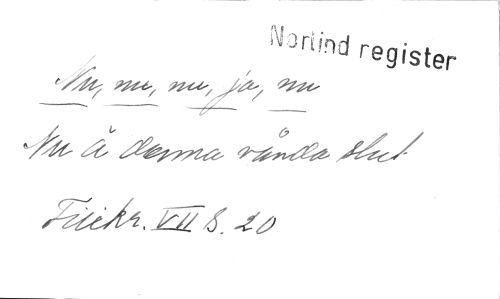 Norlind register
Nu, nu, nu, ja, nu
Nu ä denna vånda slut
Filikr. VII S. 20